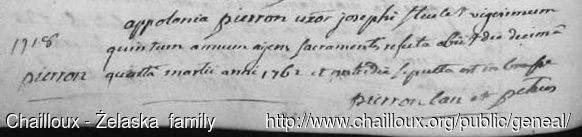 appolonia pierron uxor josephi vigesimum
1718
quintum annum agens sacramentis refecta obiit die decimâ
pierron quartâ martii anni 1762 et postridie sepulta est in
pierron
Chailloux - Żelaska family http://www.chailloux.org/public/geneal/